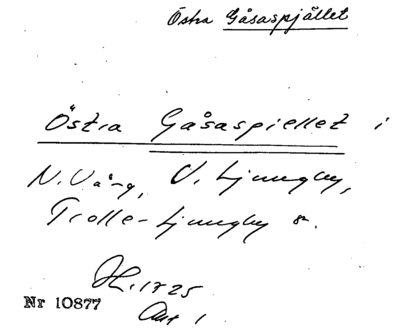 Östra Gåsaspjället
Östra Gåsaspiellet i
N. Vång, V. Ljungby,
Trolle-Ljungby
H. 1725
Nr 10877
Akt 1